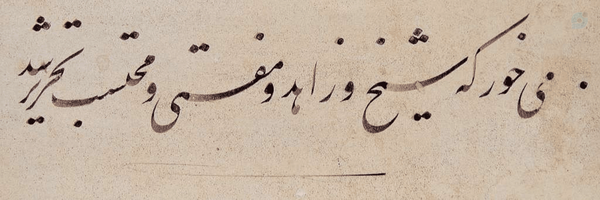 می خور که شیخ و زاهد و مفتی و محتسب تحریر شد